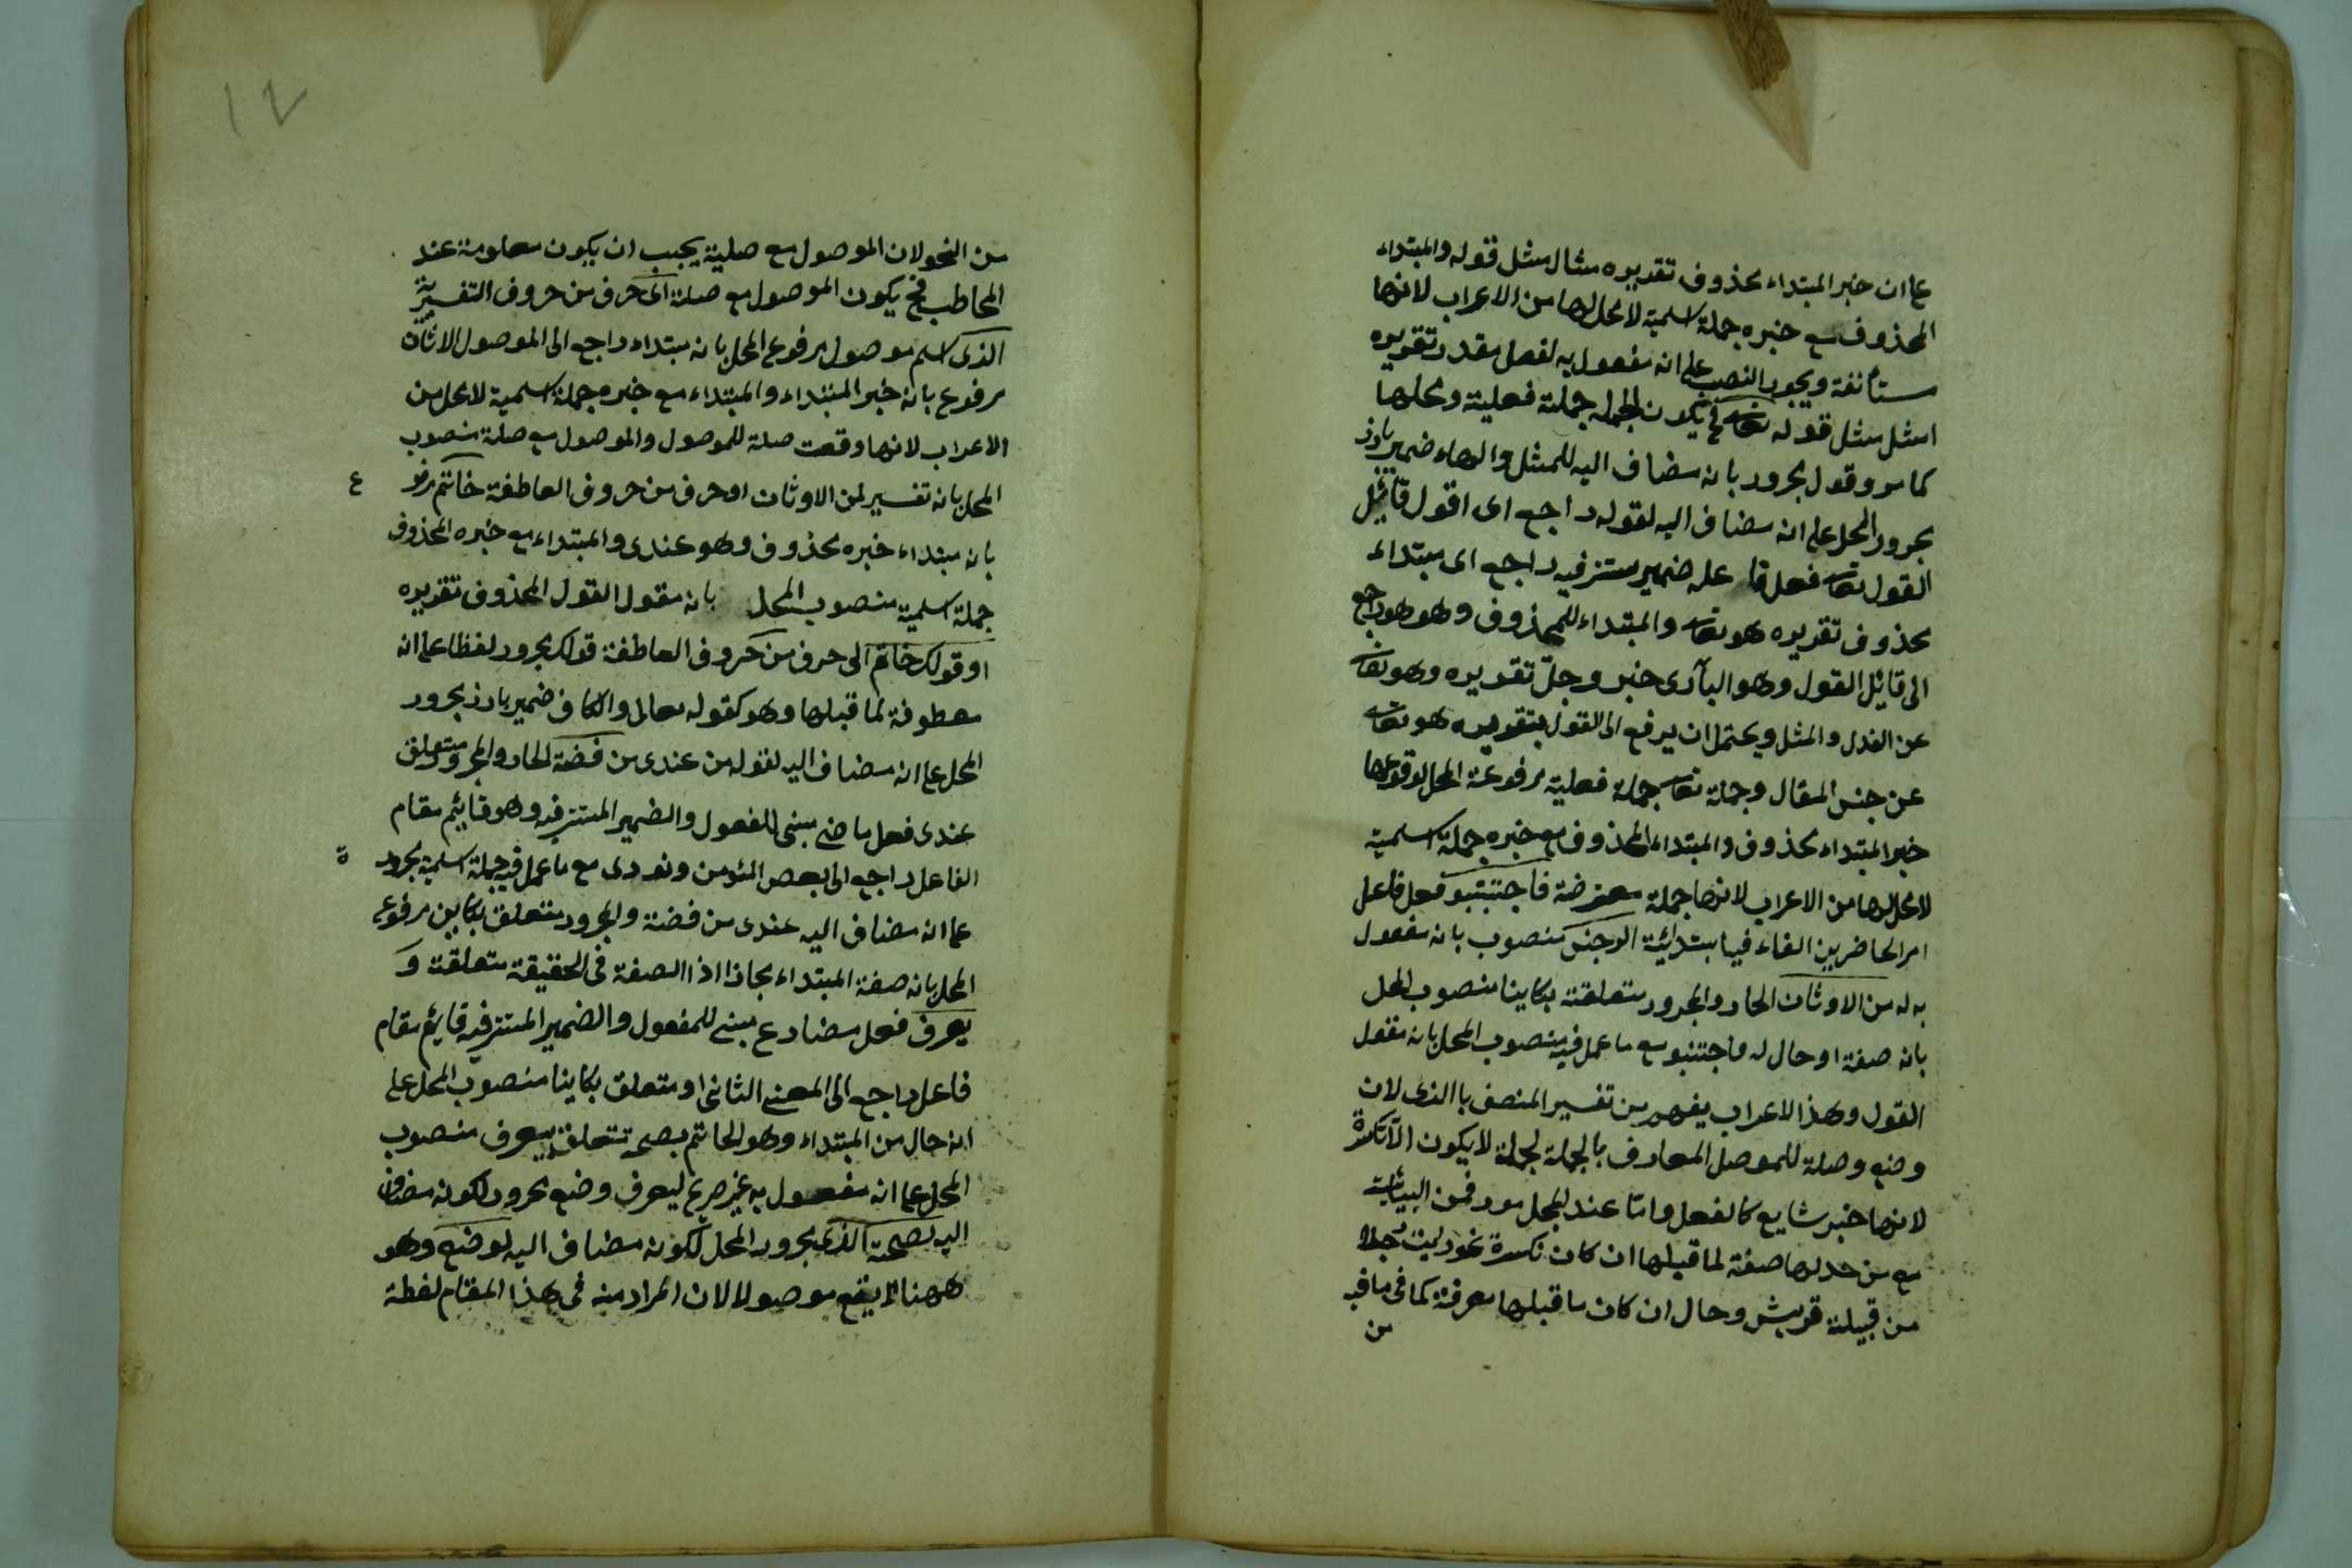 على ان خبر المبتداء محذوف تقديره مثال مثل قوله والمبتداء
المحذوف مع خبره جملة اسمية لا محل لها من الاعراب لانها
مستأنفة ويجوز النصب على انه مفعول به لفعل مقدر تقديره
امثل مثل قوله تعا فح يكون الجملة جملة فعلية ومحلها
كما مر وقول مجرور بانه مضاف اليه للمثل والهاء ضمير بارز
مجرور المحل على انه مضاف اليه لقوله راجع اى اقول قائل
القول تعا فعل فا عله ضمير مستتر فيه راجع اى مبتداء
محذوف تقديره هو تعا والمبتداء للمحذوف وهو هو راجع
الى قائل القول وهو البارى خبر وجل تقديره وهو تعا
عن القدل والمثل ويحتمل ان يرفع الى القول بتقديره هو تعا
عن جنس المقال وجملة تعا جملة فعلية مرفوعة المحل لوقوعها
خبر المبتداء محذوف والمبتداء المحذوف مع خبره جملة اسمية
لا محل لها من الاعراب لانها جملة معترضة فاجتنبو فعل فاعل
امر الحاضرين الفاء فيه ابتدائية الرجس منصوب بانه مفعول
به له من الاوثان الجار والمجرور متعلقة بكاينا منصوب المحل
بانه صفة او حال له فاجتنبو مع ما عمل فيه منصوب المحل بانه مقول
القول وهذا الاعراب يفهم من تفسير المنصف باالذى لان
وضع وصلة للموصل المعارف بالجملة لجملة لا يكون الا نكرة
لانها خبر شايع كالفعل واما عند الجمل مورد فمن البيانية
مع من حد لها صفة لما قبلها ان كان نكرة نحو رايت رجلا
من قبيلة قريش وحال ان كان ما قبلها معرفة كما فى ما فيه
من
١٢
من النحو لان الموصول مع صلية يجب ان يكون معلومة عند
المخاطب فح يكون الموصول مع صلة اى حرف من حروف التفسيرية
الذى اسم موصول مرفوع المحل بانه مبتداء راجع الى الموصول الاوثان
مرفوع بانه خبر المبتداء والمبتداء مع خبره جملة اسمية لا محل من
الاعراب لانها وقعت صلة للموصول والموصول مع صلة منصوب
المحل بانه تفسير لمن الاوثان او حرف من حروف العاطفة خاتم مرفو ع
بانه مبتداء خبره محذوف وهو عندى والمبتداء مع خبره المحذوف
جملة اسمية منصوب المحل بانه مقول القول المحذوف تقديره
او قولك خاتم الى حرف من حروف العاطفة قولك مجرور لفظا على انه
معطوفة لما قبلها وهو كقوله تعالى والكاف ضمير بارز مجرور
المحل على انه مضاف اليه لقوله من عندى من فضة الجار والمجرور متعلق
عندى فعل ماضى مبنى للمفعول والضمير المستتر فيه وهو قائم مقام
الفاعل راجع الى بعص المئومن ونودى مع ما عمل فيه جملة اسمية مجرور ة
على انه مضاف اليه عندى من فضة والمجرور متعلق بكاين مرفوع
المحل بانه صفة المبتداء مجازا اذ الصفة فى الحقيقة متعلقة و
يعرف فعل مضارع مبنى للمفعول والضمير المستتر فيه قايم مقام
فاعل راجع الى المعنى الثانى او متعلق بكاينا منصوب المحل على
انه حال من المبتداء وهو الخاتم بصحة تتعلق بيعرف منصوب
المحل على انه مفعول به غير صريح ليعرف وضع مجرور لكونه مضاف
اليه لصحة الذى مجرور المحل لكونه مضاف اليه لوضع وهو
ههنا لا يقع موصولا لان المراد منه فى هذا المقام لفظة